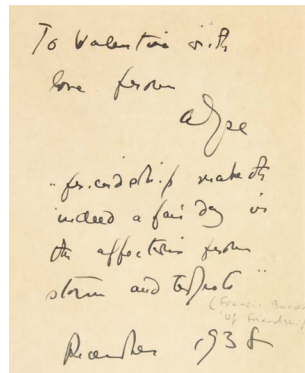 To Valentine with
love from
"friendship maketh
indeed a fair day in
the affections from
storm and tempests"
(Francis Bacon
'Of Friendship'
December 1938